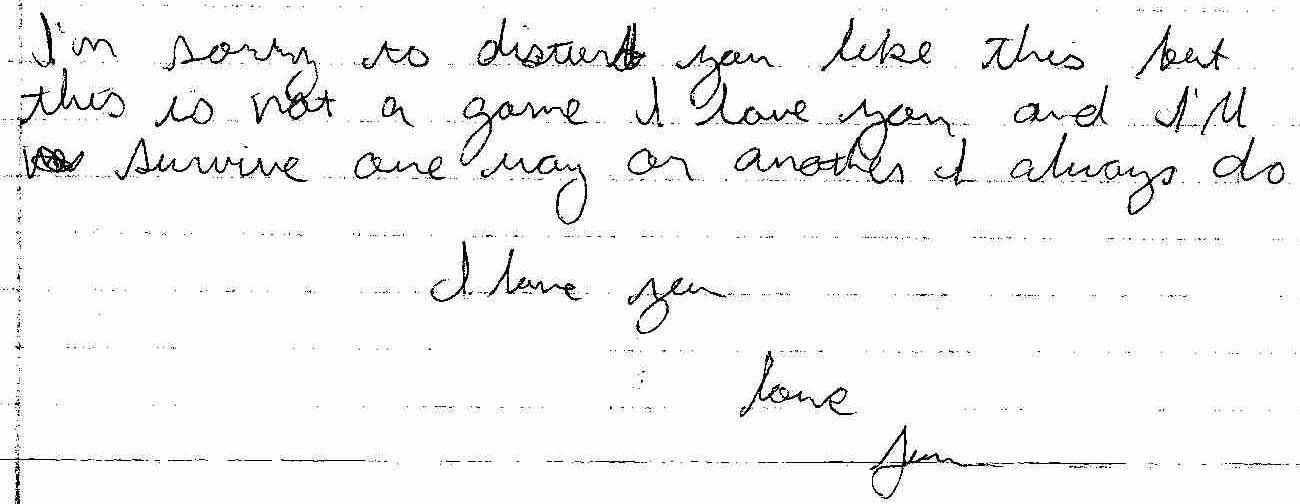 I'm sorry to disturb you like this but
this is not a game I love you and I'll
survive one way or another I always do
I love you
love